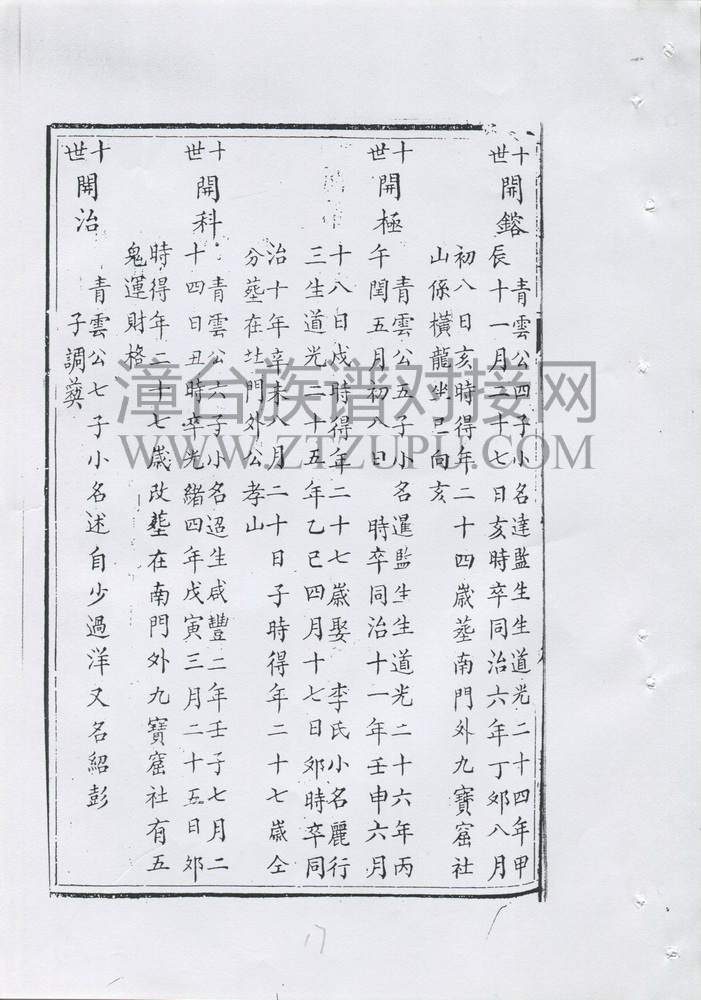 十世 開鎔
青雲公四子小名達監生生道光二十四年甲
辰十一月二十七日亥時卒同治六年丁卯八月
初八日亥時得年二十四歲塟南門外九寶窟社
山係橫龍坐巳向亥
十世 開極
青雲公五子小名暹監生生道光二十六年丙
午閏五月初八日 時卒同治十一年壬申六月
十八日戌時得年二十七歲娶 李氏小名麗行
三生道光二十五年乙巳四月十七日卯時卒同
治十年辛未八月二十日子時得年二十七歲仝
分塟在 門外公孝山
十世 開科
青雲公六子小名迢生咸豐二年壬子七月二
十四日丑時卒光緒四年戊寅三月二十五日卯
時得年二十七歲改塟在南門外九寶窟社有五
鬼運財格
十世 開治
青雲公七子小名述自少過洋又名紹彭
子調奠
漳台族谱对接网
WWW.ZTZUPU.COM
17